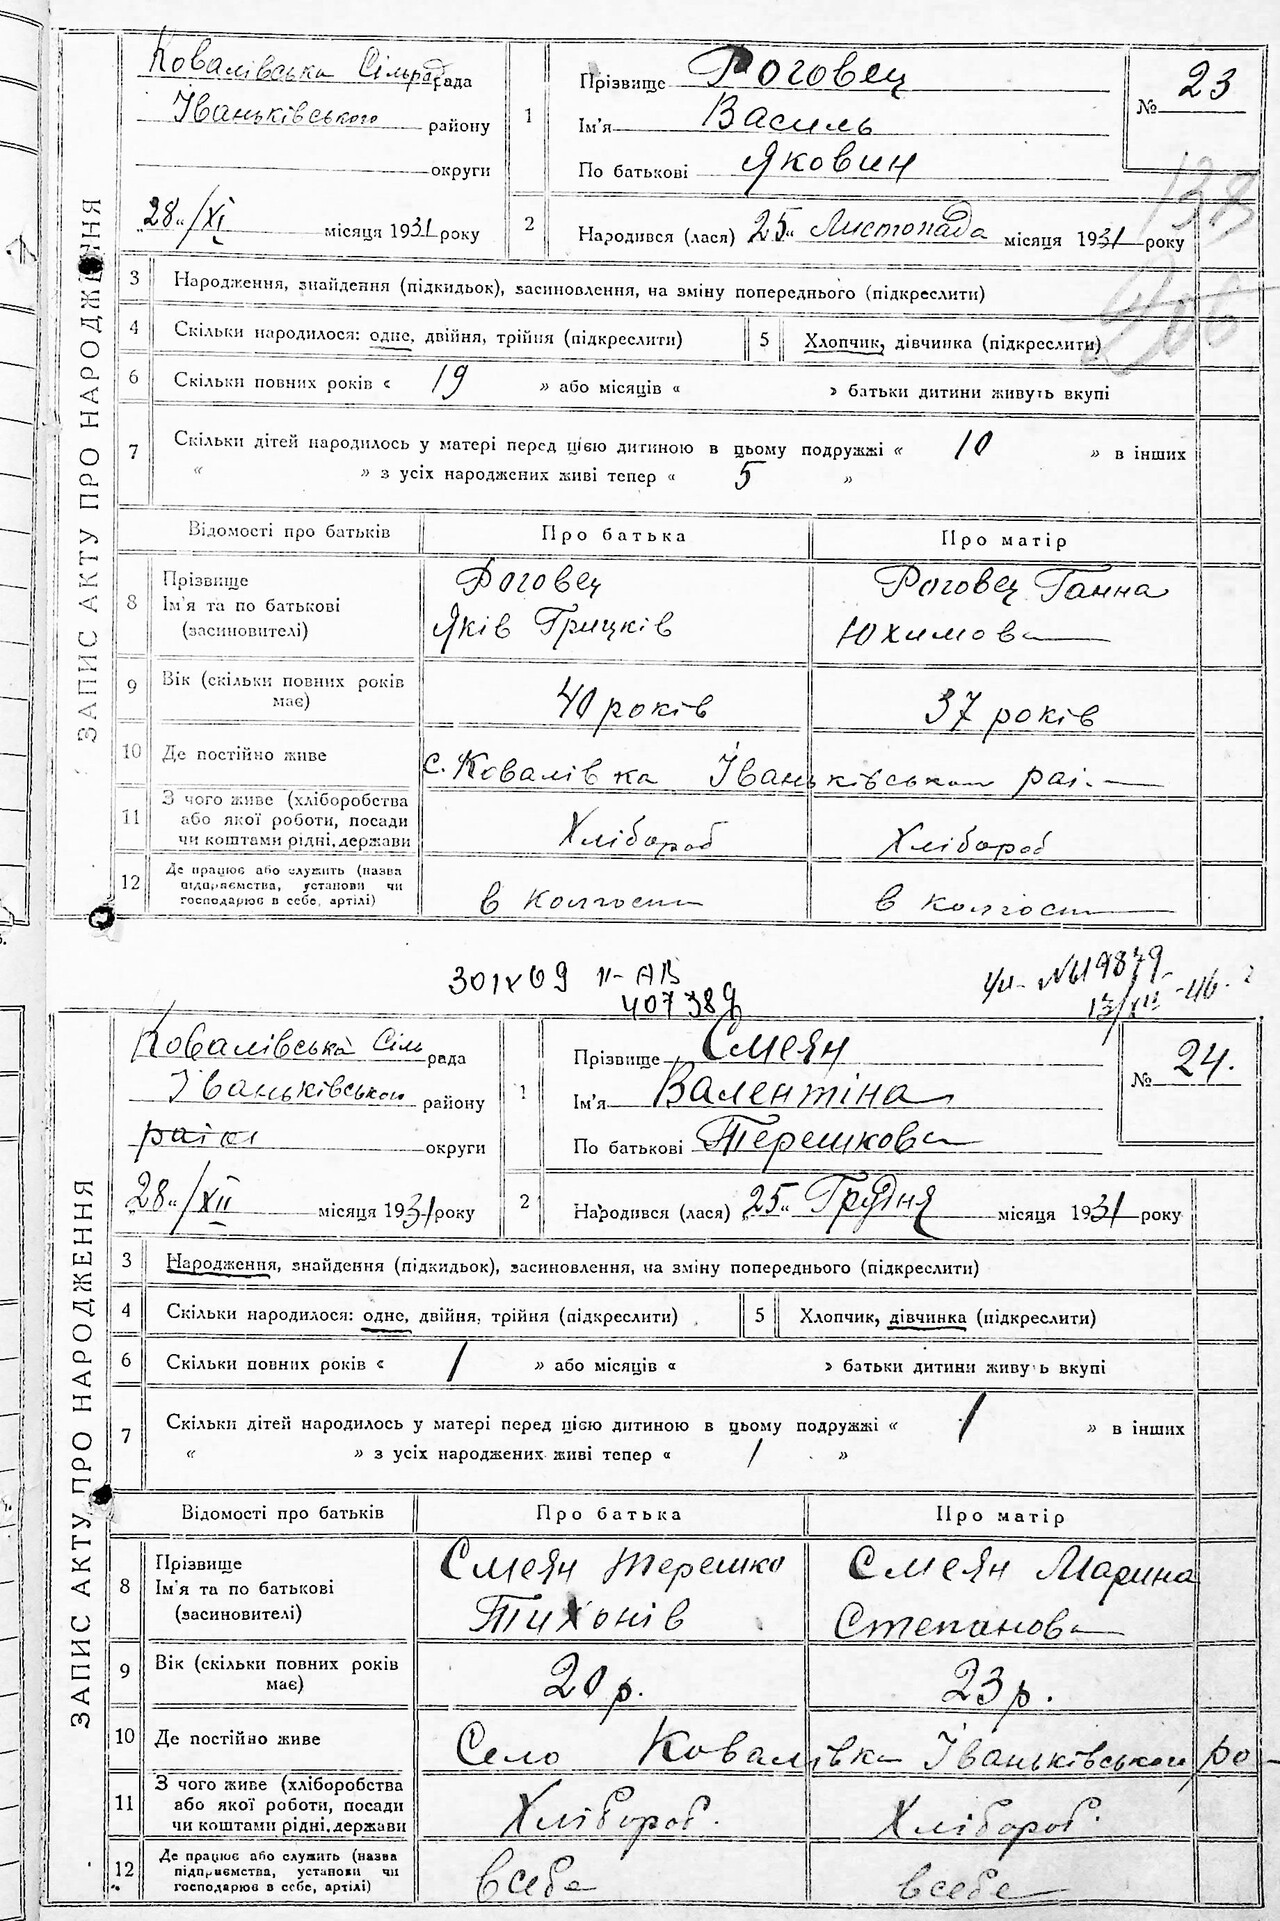 ЗАПИС АКТУ ПРО НАРОДЖЕННЯ
Ковалівська Сільрада рада
Іваньківського району
округи
"28"/XI місяця 1931 року
1
Прізвище Роговец
Ім'я Василь
По батькові Яковин
№ 23
138
2
Народився (лася) "25" Листопада місяця 1931 року
3 Народження, знайдення (підкидьок), засиновлення, на зміну попереднього (підкреслити)
4 Скільки народилося: одне, двійня, трійня (підкреслити) 5 Хлопчик, дівчинка (підкреслити)
6 Скільки повних років « 19 » або місяців « » батьки дитини живуть вкупі
7 Скільки дітей народилось у матері перед цією дитиною в цьому подружжі « 10 » в інших
« » з усіх народжених живі тепер « 5 »
Відомості про батьків Про батька Про матір
8 Прізвище Ім'я та по батькові (засиновителі)
Роговец Яків Грицків
Роговец Ганна Юхимова
9 Вік (скільки повних років має) 40 років 37 років
10 Де постійно живе с. Ковалівка Іваньківського
11 З чого живе (хліборобства або якої роботи, посади чи коштами рідні, держави Хлібороб Хлібороб
12 Де працює або служить (назва підприємства, установи чи господарює в себе, артілі) в колгоспі в колгоспі
407389
№ 19879
ЗАПИС АКТУ ПРО НАРОДЖЕННЯ
Ковалівська Сіль рада
Іваньківського району
округи
"28"/XII місяця 1931 року
1
Прізвище Смеян
Ім'я Валентіна
По батькові Терешкова
№ 24.
2
Народився (лася) "25" Грудня місяця 1931 року
3 Народження, знайдення (підкидьок), засиновлення, на зміну попереднього (підкреслити)
4 Скільки народилося: одне, двійня, трійня (підкреслити) 5 Хлопчик, дівчинка (підкреслити)
6 Скільки повних років « 1 » або місяців « » батьки дитини живуть вкупі
7 Скільки дітей народилось у матері перед цією дитиною в цьому подружжі « 1 » в інших
« » з усіх народжених живі тепер « 1 »
Відомості про батьків Про батька Про матір
8 Прізвище Ім'я та по батькові (засиновителі)
Смеян Терешко Тихонів
Смеян Марина Степанова
9 Вік (скільки повних років має) 20 р. 23 р.
10 Де постійно живе Село Ковалівка Іваньківського ро-
11 З чого живе (хліборобства або якої роботи, посади чи коштами рідні, держави Хлібороб. Хлібороб.
12 Де працює або служить (назва підприємства, установи чи господарює в себе, артілі) в себе в себе